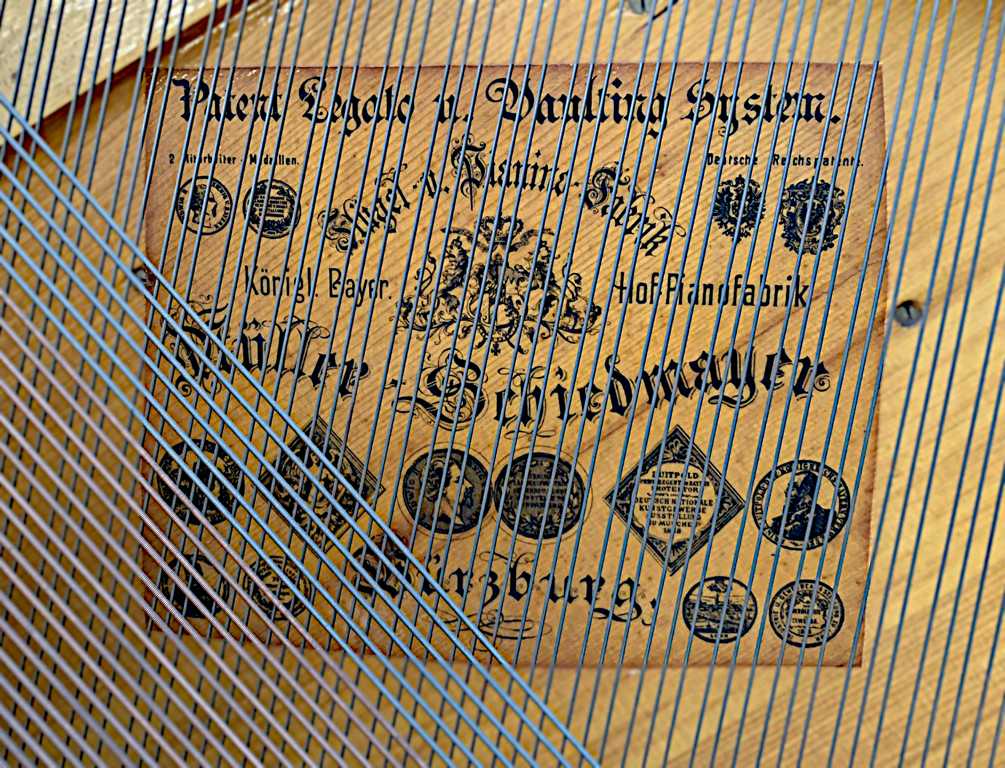 Patent Legato u. Vaulting System.
2 Mitarbeiter - Medaillen.
Deutsche Reichspatente.
Flügel- u. Pianino-Fabrik
Königl. Bayer. Hof Pianofabrik
Müller-Schiedmayer
LUITPOLD
PROTECTOR
DEUTSCH NATIONALE
KUNSTGEWERBE
AUSSTELLUNG
ZU MÜNCHEN
1888
Würzburg.